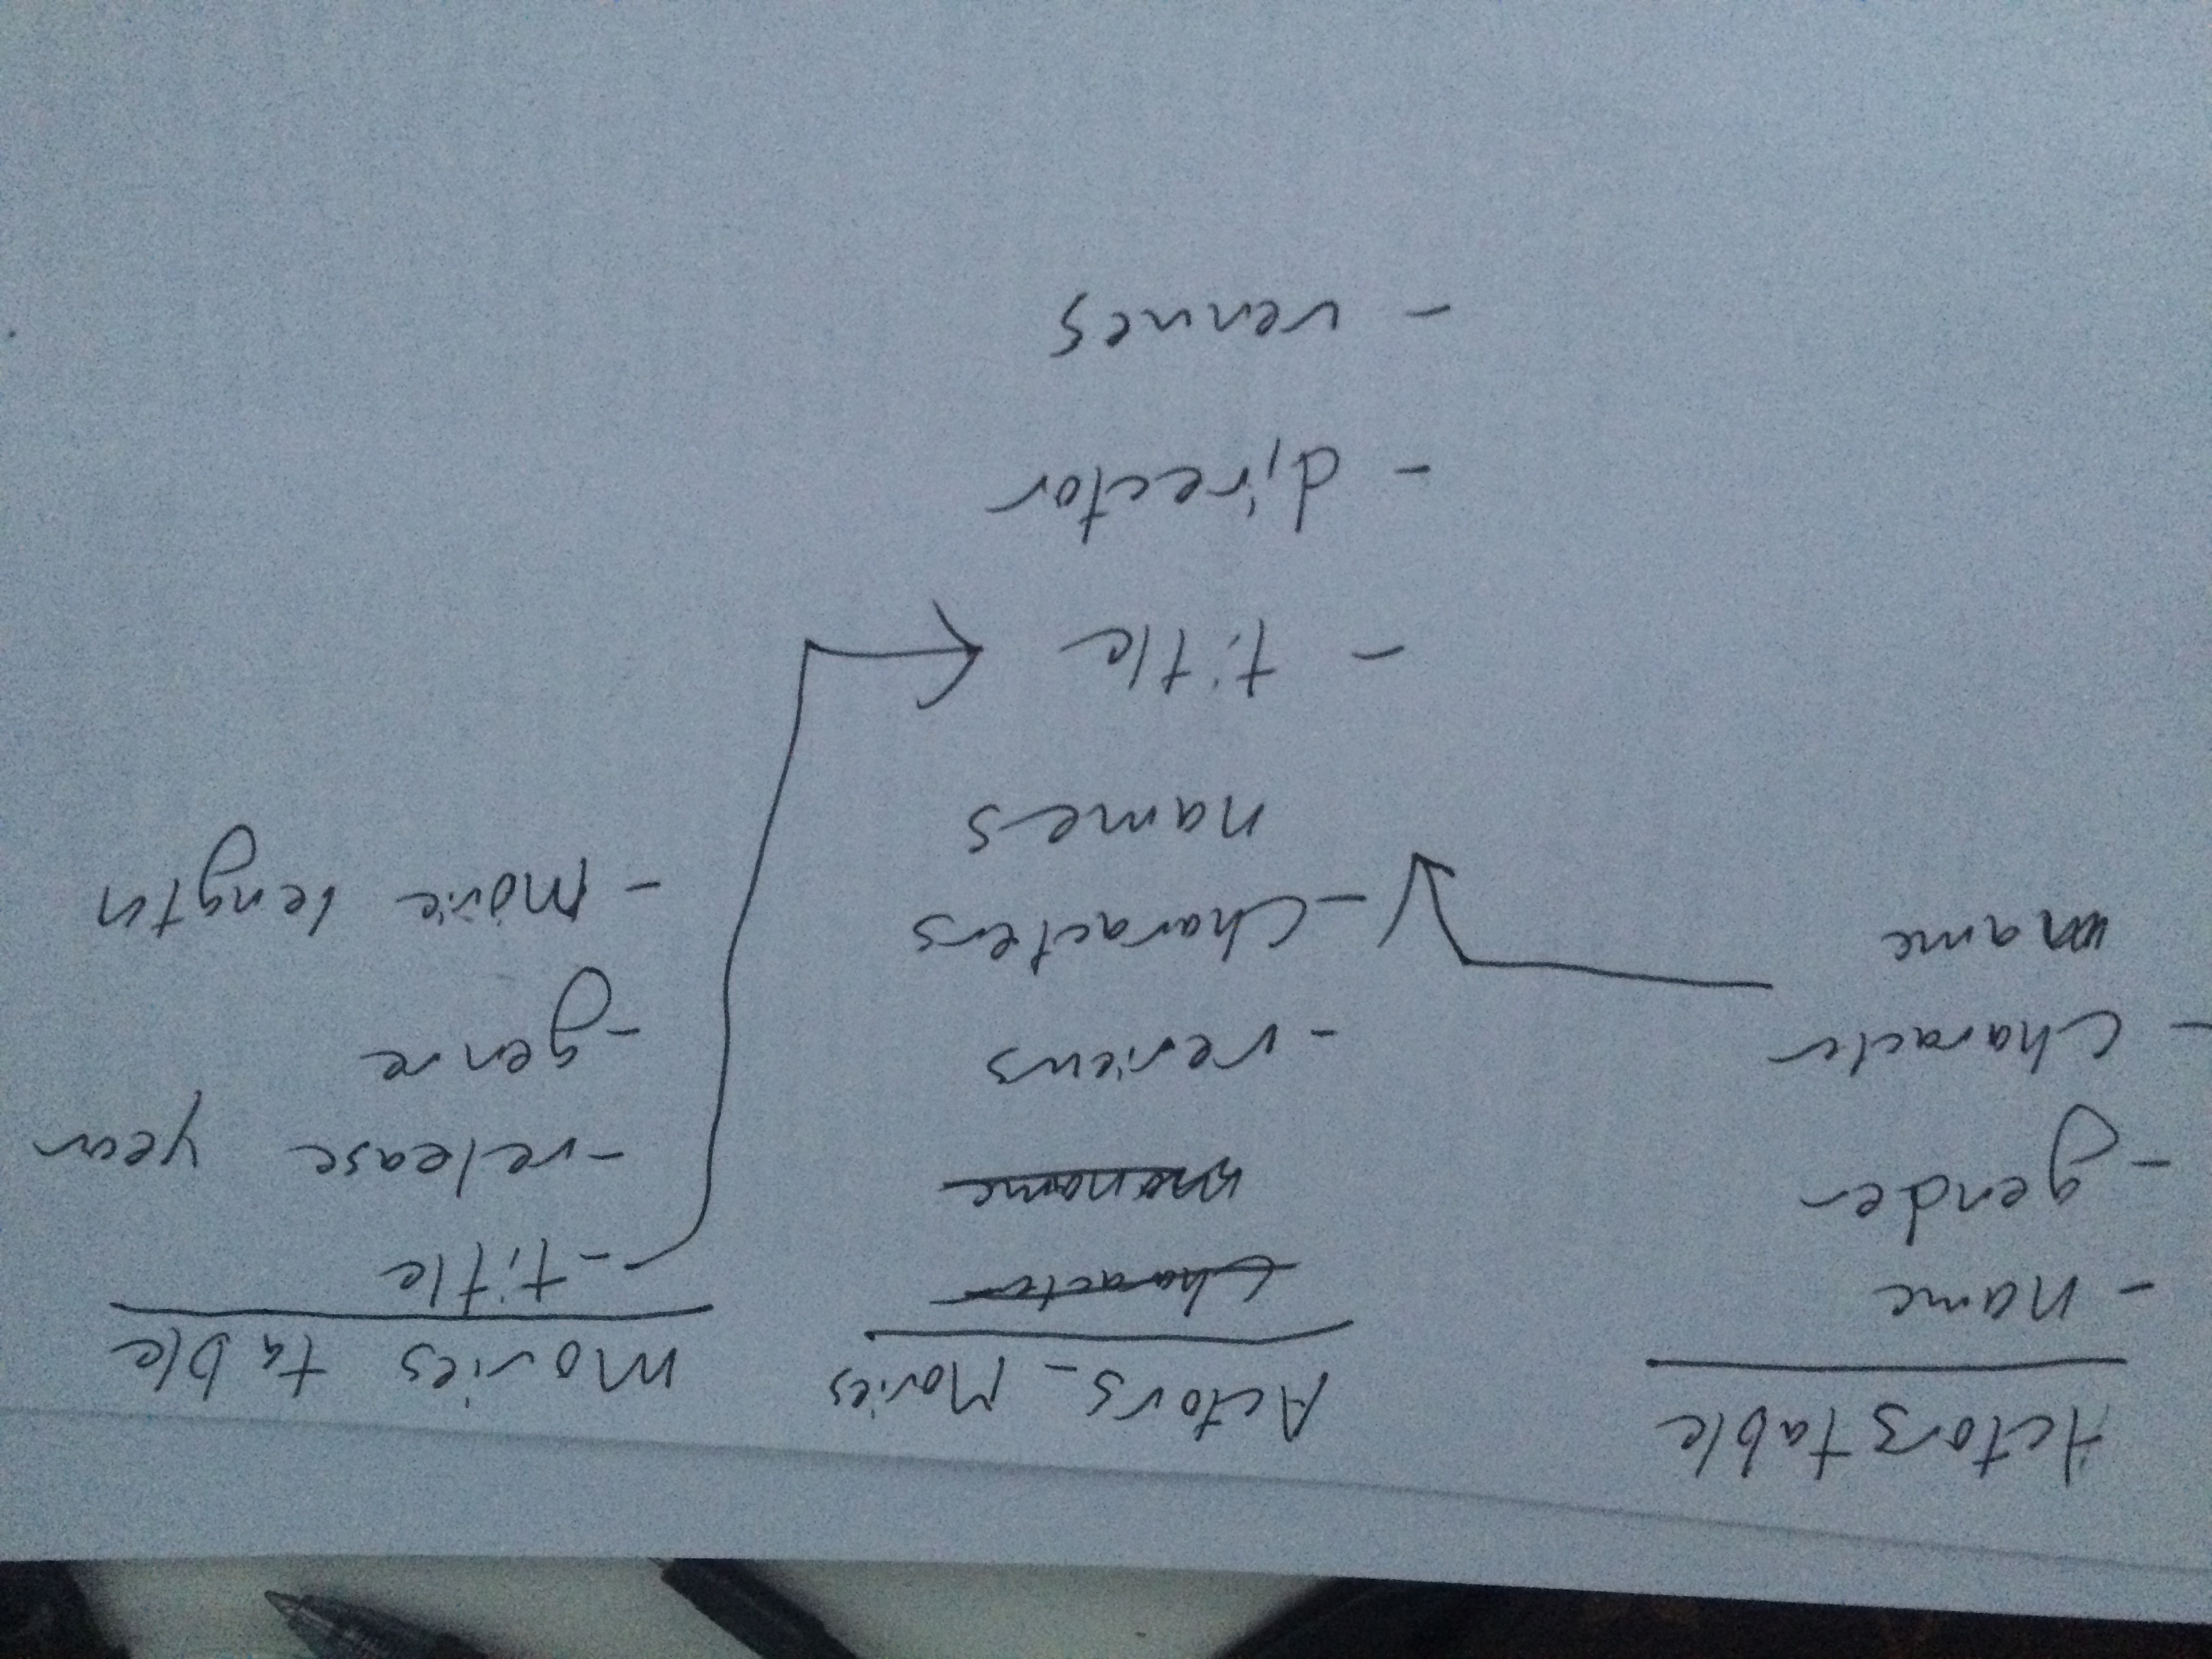 Actors table
- name
- gender
- character
name
Actors_Movies
character
- reviews
- characters
names
- title
- director
- venues
movies table
- title
- release year
- genre
- movie length